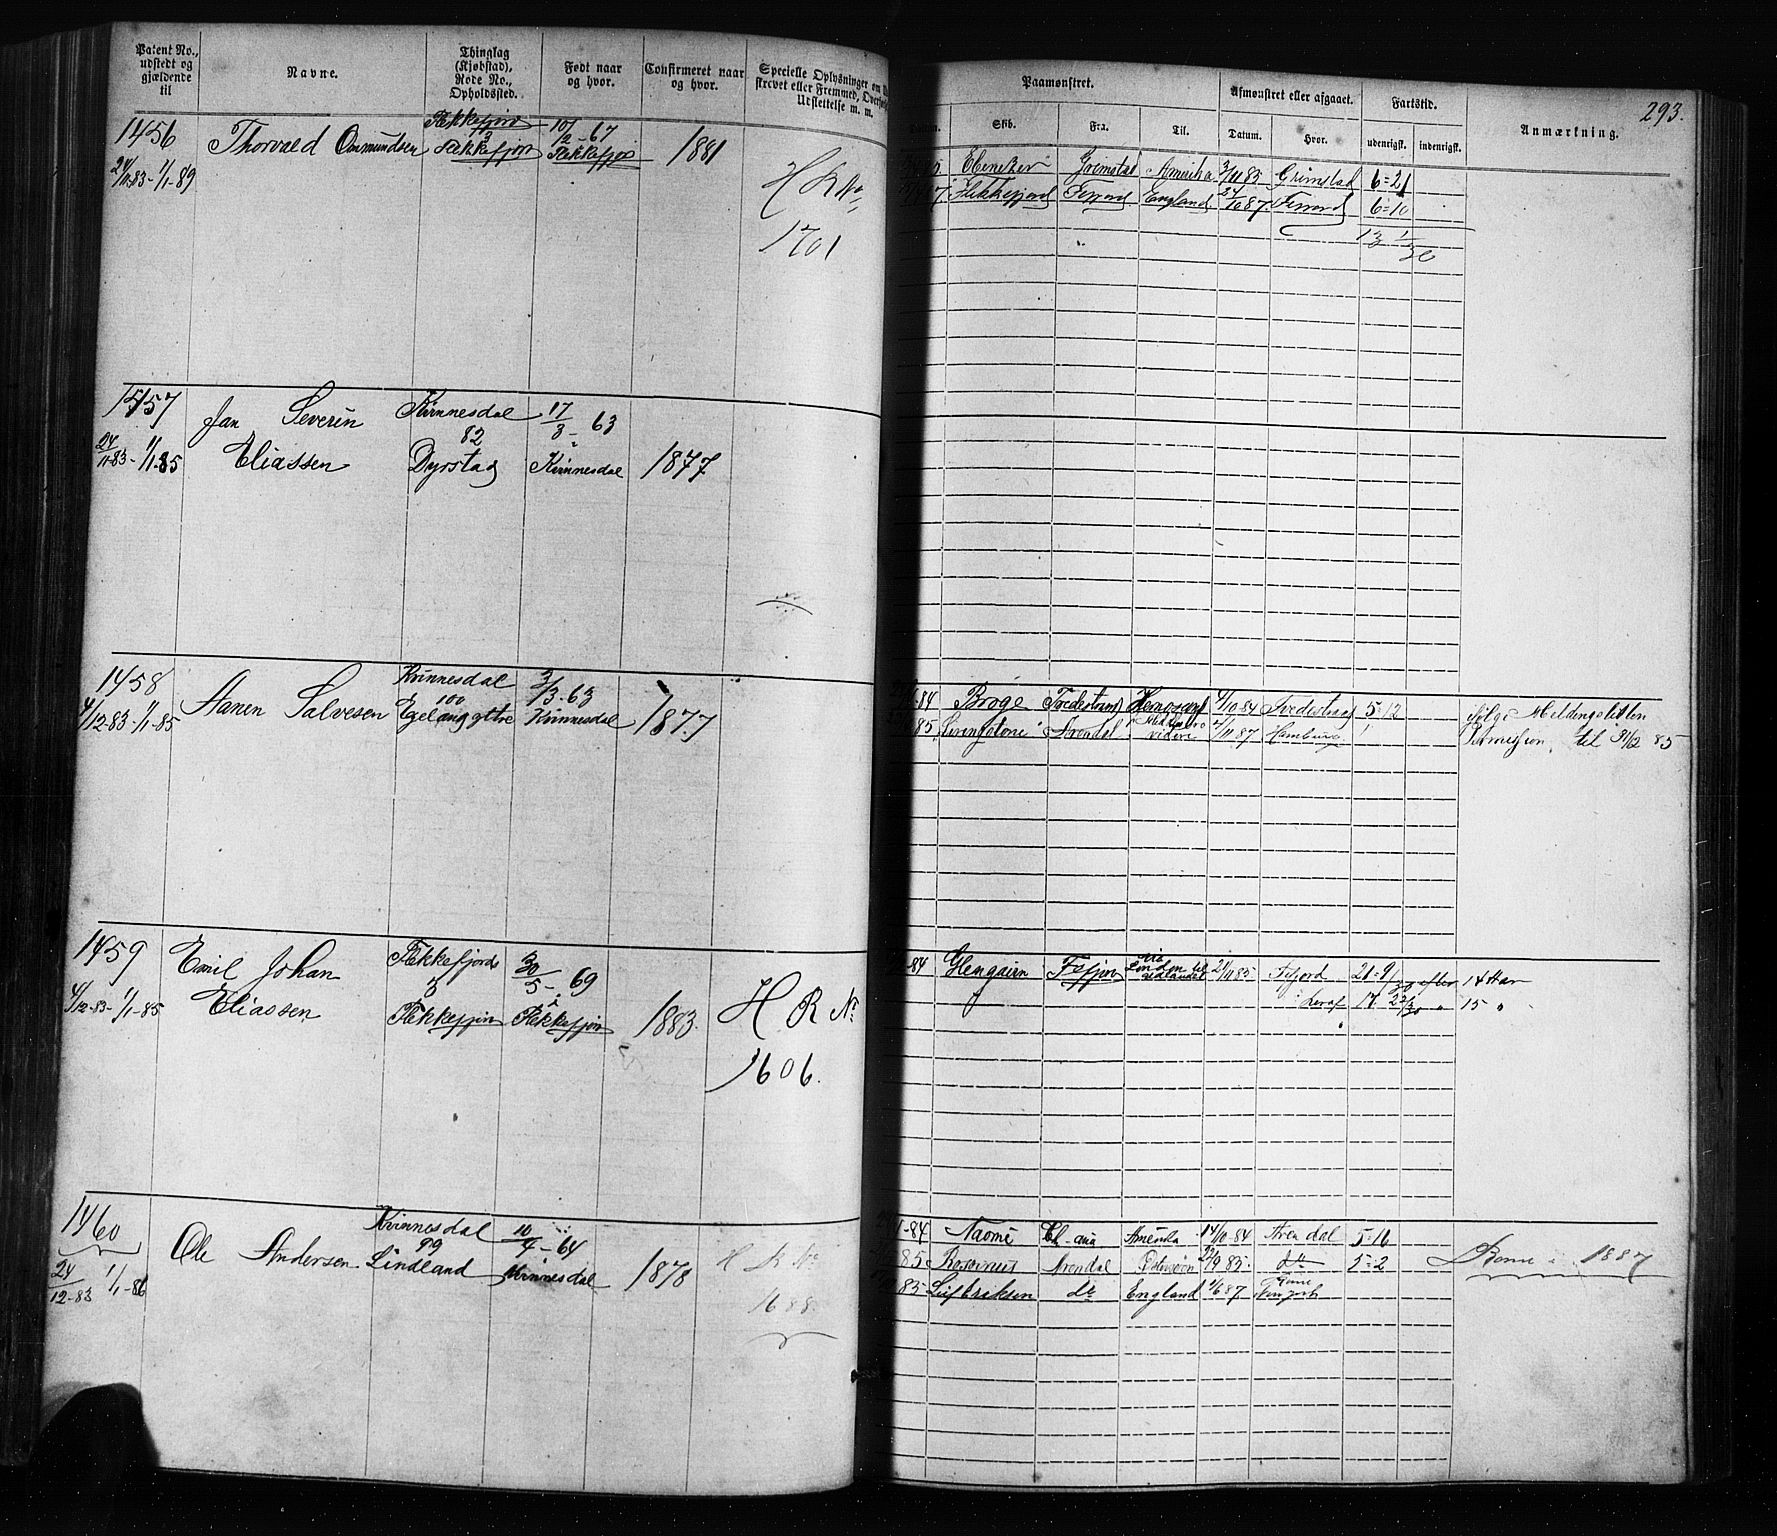 Patent No., udstedt og gjældende til
Navne.
Thinglag (Kjøbstad), Rode No., Opholdssted.
Født naar og hvor.
Confirmeret naar og hvor.
Specielle Oplysninger om
strevet eller Fremmed,
Udslettelse m. m.
Paamønstret.
Skib.
Fra.
Til.
Afmønstret eller afgaaet.
Datum.
Hvor.
Fartstid.
udenrigsk.
indenrigsk.
Anmærkning.
293.
1456
24/11-83-1/1-89
Thorvald Ommundsen
Flekkefjord
Flekkefjord
10/2-67
Flekkefjord
1881
H R No
1701
Ebenezer Grimstad Amerika 3/11 85 Grimstad 6=21
Flekkefjord Fefjord England 24/10 87 6=10
13 1/30
1457
24/11-83-1/1-85
Jan Severin
Eliassen
Kvinnesdal
82
Dyrstad
17/3-63
Kvinnesdal
1877
1458
4/12-83-1/1-85
Aanen Salvesen
Kvinnesdal
100
Egeland yttre
3/3-63
Kvinnesdal
1877
84 Brage Hernosand 4/10 84 5=12
85 Livingstone Arendal videre 2/11 87 Hamburg
Ifølge Meldingslisten
Permission, til 31/12 85
1459
4/12-83-1/1-85
Emil Johan
Eliassen
Flekkefjord
5
Flekkefjord
30/5-69
Flekkefjord
1883
H R No
1606.
84 Glengairn via London til 2/11 85 21=9/30 efter 14 Aar
17. 22/30 " 15 "
1460
24/12-83 1/1-86
Ole Andersen
Kvinnesdal
99
Lindland
10/4-64
Kvinnesdal
1878
H R No
1688
84 Naomi Amerika 14/10-84 Arendal 5=16
85 Arendal 22/9 85 do 5=2
Leif Eriksen do England 1/6 87
Rømt i 1887